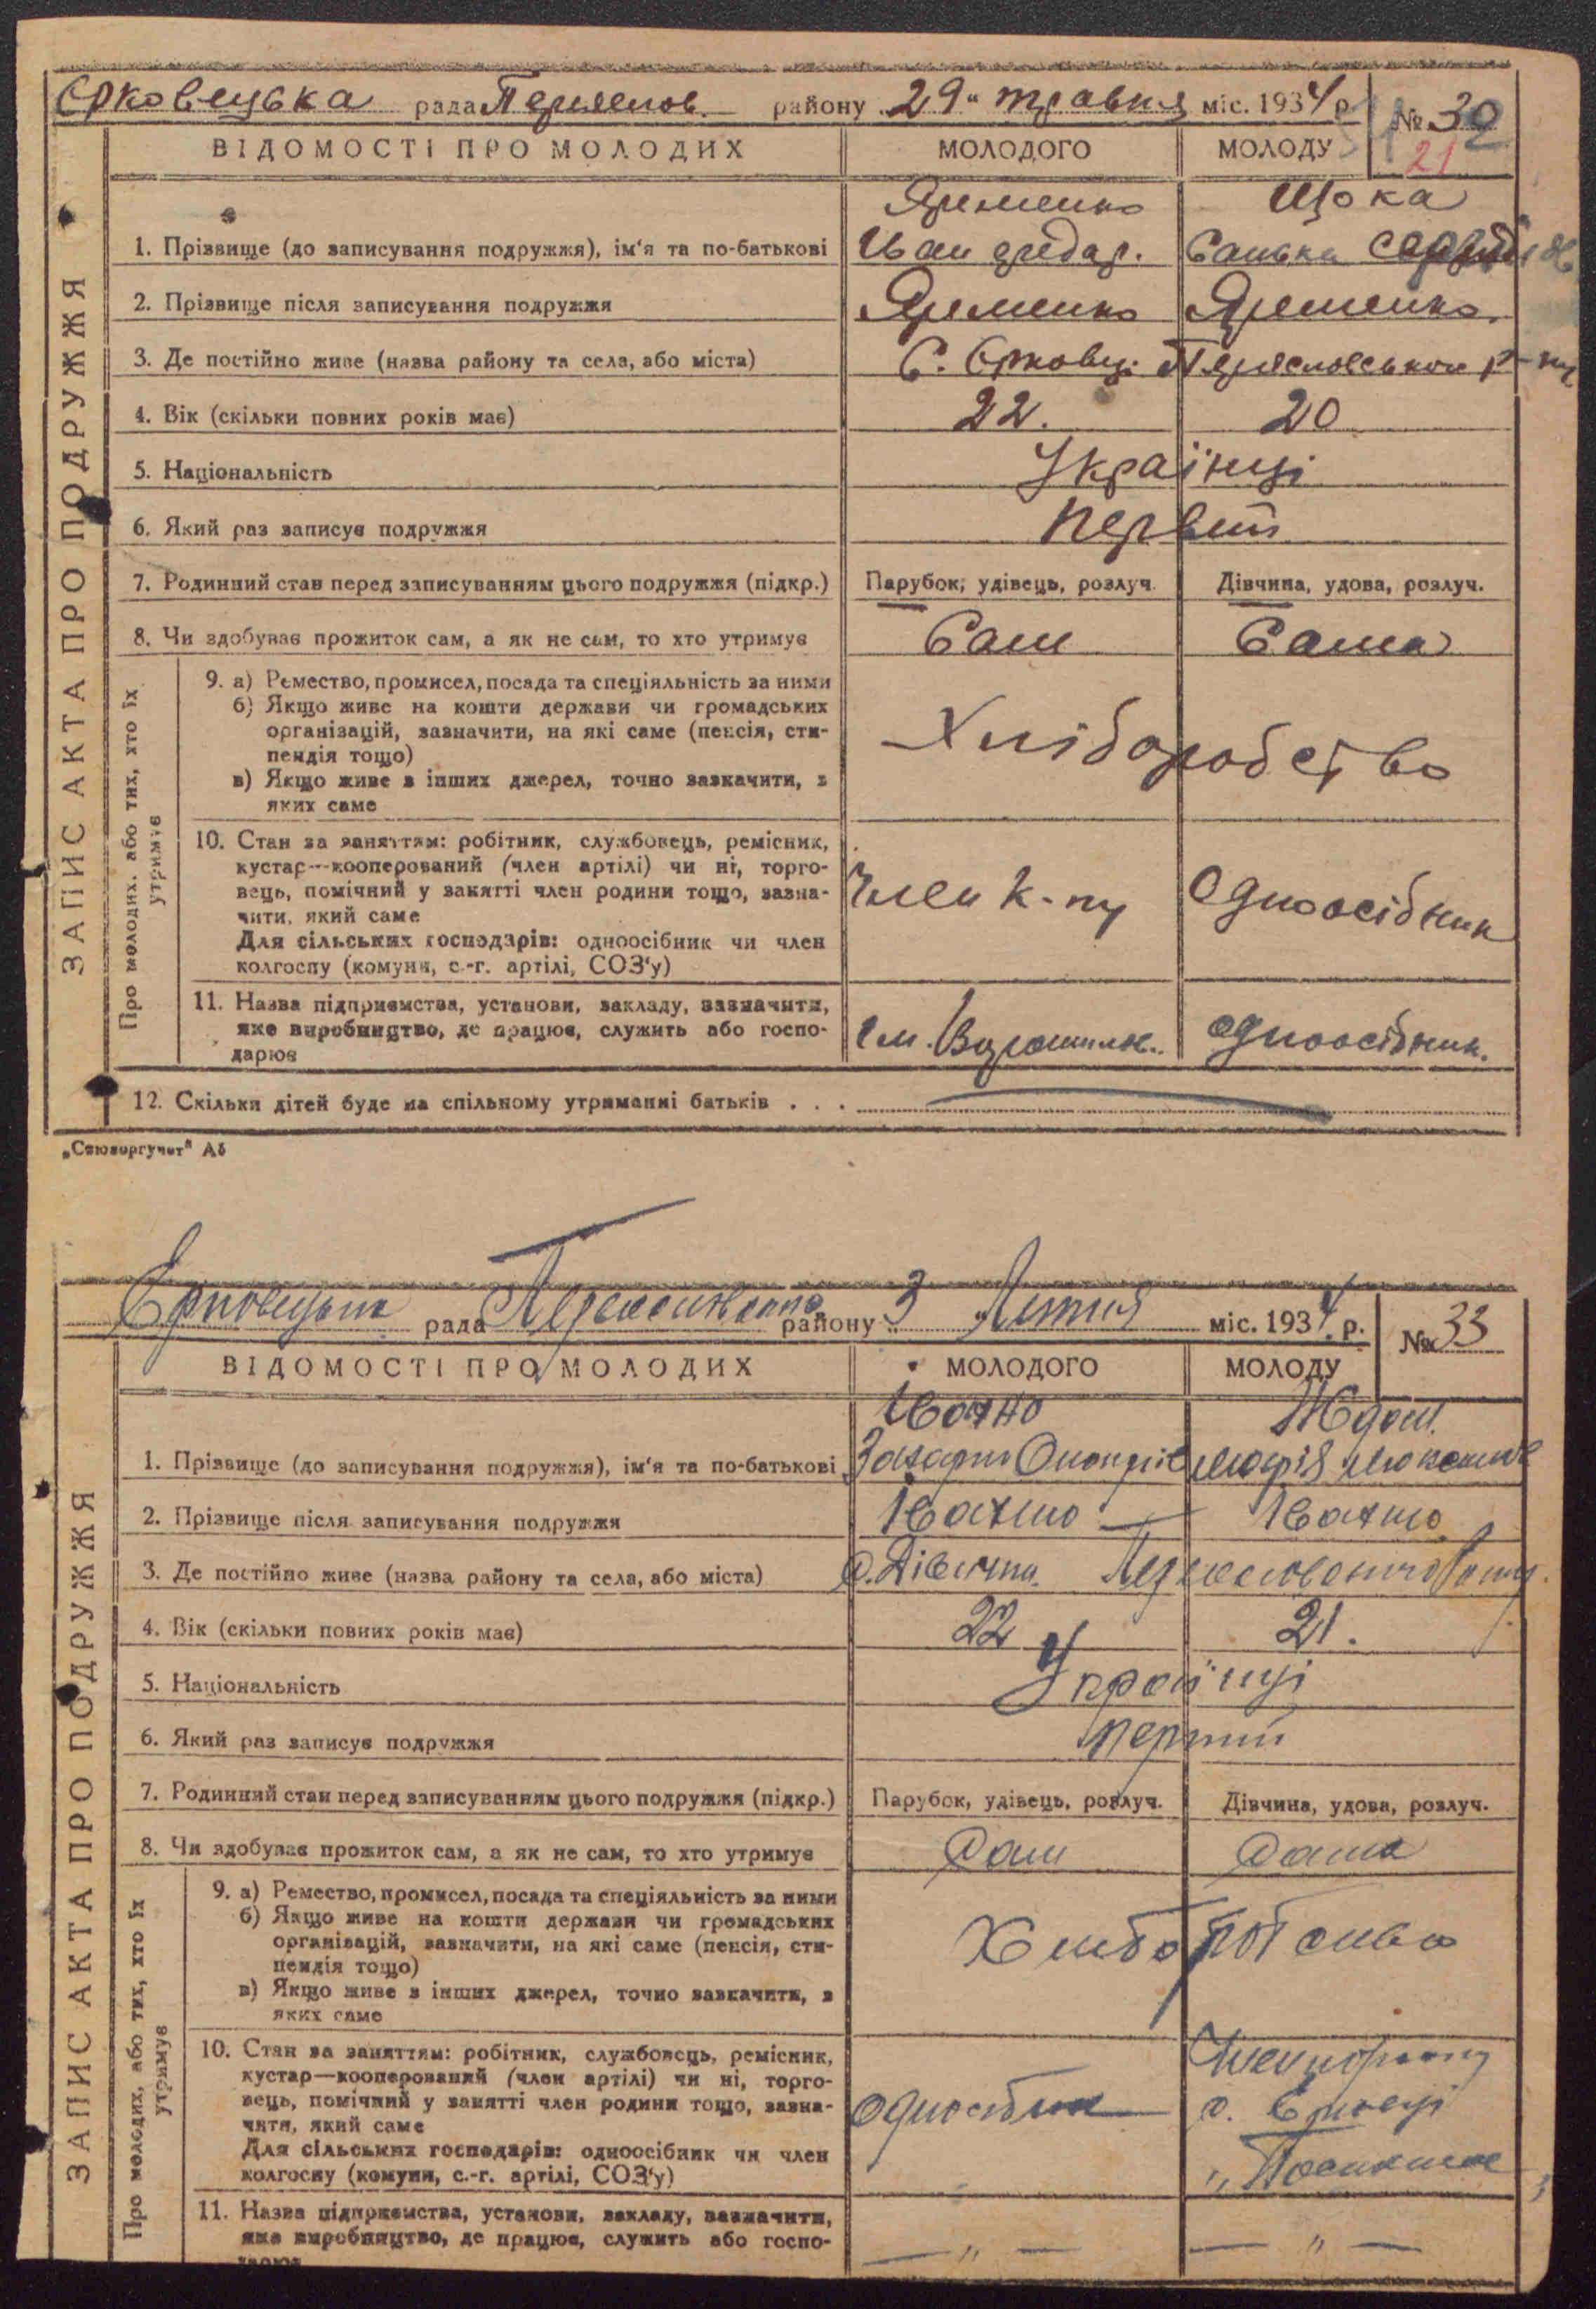 Єрковецька рада Переяслов. району 29 " травня міс. 1934 р.
№ 32
21
ВІДОМОСТІ ПРО МОЛОДИХ МОЛОДОГО МОЛОДУ
Яременко Щока
1. Прізвище (до записування подружжя), ім'я та по-батькові Іван Федар. Санька
2. Прізвище після записування подружжя Яременко Яременко.
3. Де постійно живе (назва району та села, або міста) С. Єрковці Переясловського р-ну
4. Вік (скільки повних років має) 22. 20
5. Національність Українці
6. Який раз записує подружжя Первий
7. Родинний стан перед записуванням цього подружжя (підкр.) Парубок, удівець, розлуч. Дівчина, удова, розлуч.
8. Чи здобуває прожиток сам, а як не сам, то хто утримує Сам Сама
ЗАПИС АКТА ПРО ПОДРУЖЖЯ
Про молодих, або тих, хто їх утримує
9. а) Ремество, промисел, посада та спеціяльність за ними
б) Якщо живе на кошти держави чи громадських
організацій, зазначити, на які саме (пенсія, сти-
пендія тощо)
в) Якщо живе з інших джерел, точно зазначити, з
яких саме
Хліборобство
10. Стан за заняттям: робітник, службовець, ремісник,
кустар—кооперований (член артілі) чи ні, торго-
вець, помічний у занятті член родини тощо, зазна-
чити, який саме
Для сільських господарів: одноосібник чи член
колгоспу (комуни, с.-г. артілі, СОЗ'у)
Член к-пу Одноосібник
11. Назва підприємства, установи, закладу, зазначити,
яке виробництво, де працює, служить або госпо-
дарює
ім. Ворошилов. одноосібник.
12. Скільки дітей буде на спільному утриманні батьків . . .
„Союзоргучет" Аб
Єрковецька рада Переяславського району 3 " Липня міс. 1934 р.
№ 33
ВІДОМОСТІ ПРО МОЛОДИХ МОЛОДОГО МОЛОДУ
Івахно
1. Прізвище (до записування подружжя), ім'я та по-батькові Захарій Марія
2. Прізвище після записування подружжя Івахно — Івахно
3. Де постійно живе (назва району та села, або міста) с. Дівички Переясловського
4. Вік (скільки повних років має) 22 21.
5. Національність Українці
6. Який раз записує подружжя перший
7. Родинний стан перед записуванням цього подружжя (підкр.) Парубок, удівець, розлуч. Дівчина, удова, розлуч.
8. Чи здобуває прожиток сам, а як не сам, то хто утримує Сам Сама
ЗАПИС АКТА ПРО ПОДРУЖЖЯ
Про молодих, або тих, хто їх утримує
9. а) Ремество, промисел, посада та спеціяльність за ними
б) Якщо живе на кошти держави чи громадських
організацій, зазначити, на які саме (пенсія, сти-
пендія тощо)
в) Якщо живе з інших джерел, точно зазначити, з
яких саме
Хліборобство
10. Стан за заняттям: робітник, службовець, ремісник,
кустар—кооперований (член артілі) чи ні, торго-
вець, помічний у занятті член родини тощо, зазна-
чити, який саме
Для сільських господарів: одноосібник чи член
колгоспу (комуни, с.-г. артілі, СОЗ'у)
одноосібник
с. Єрковці
11. Назва підприємства, установи, закладу, зазначити,
яке виробництво, де працює, служить або госпо-
дарює
— " — — " —